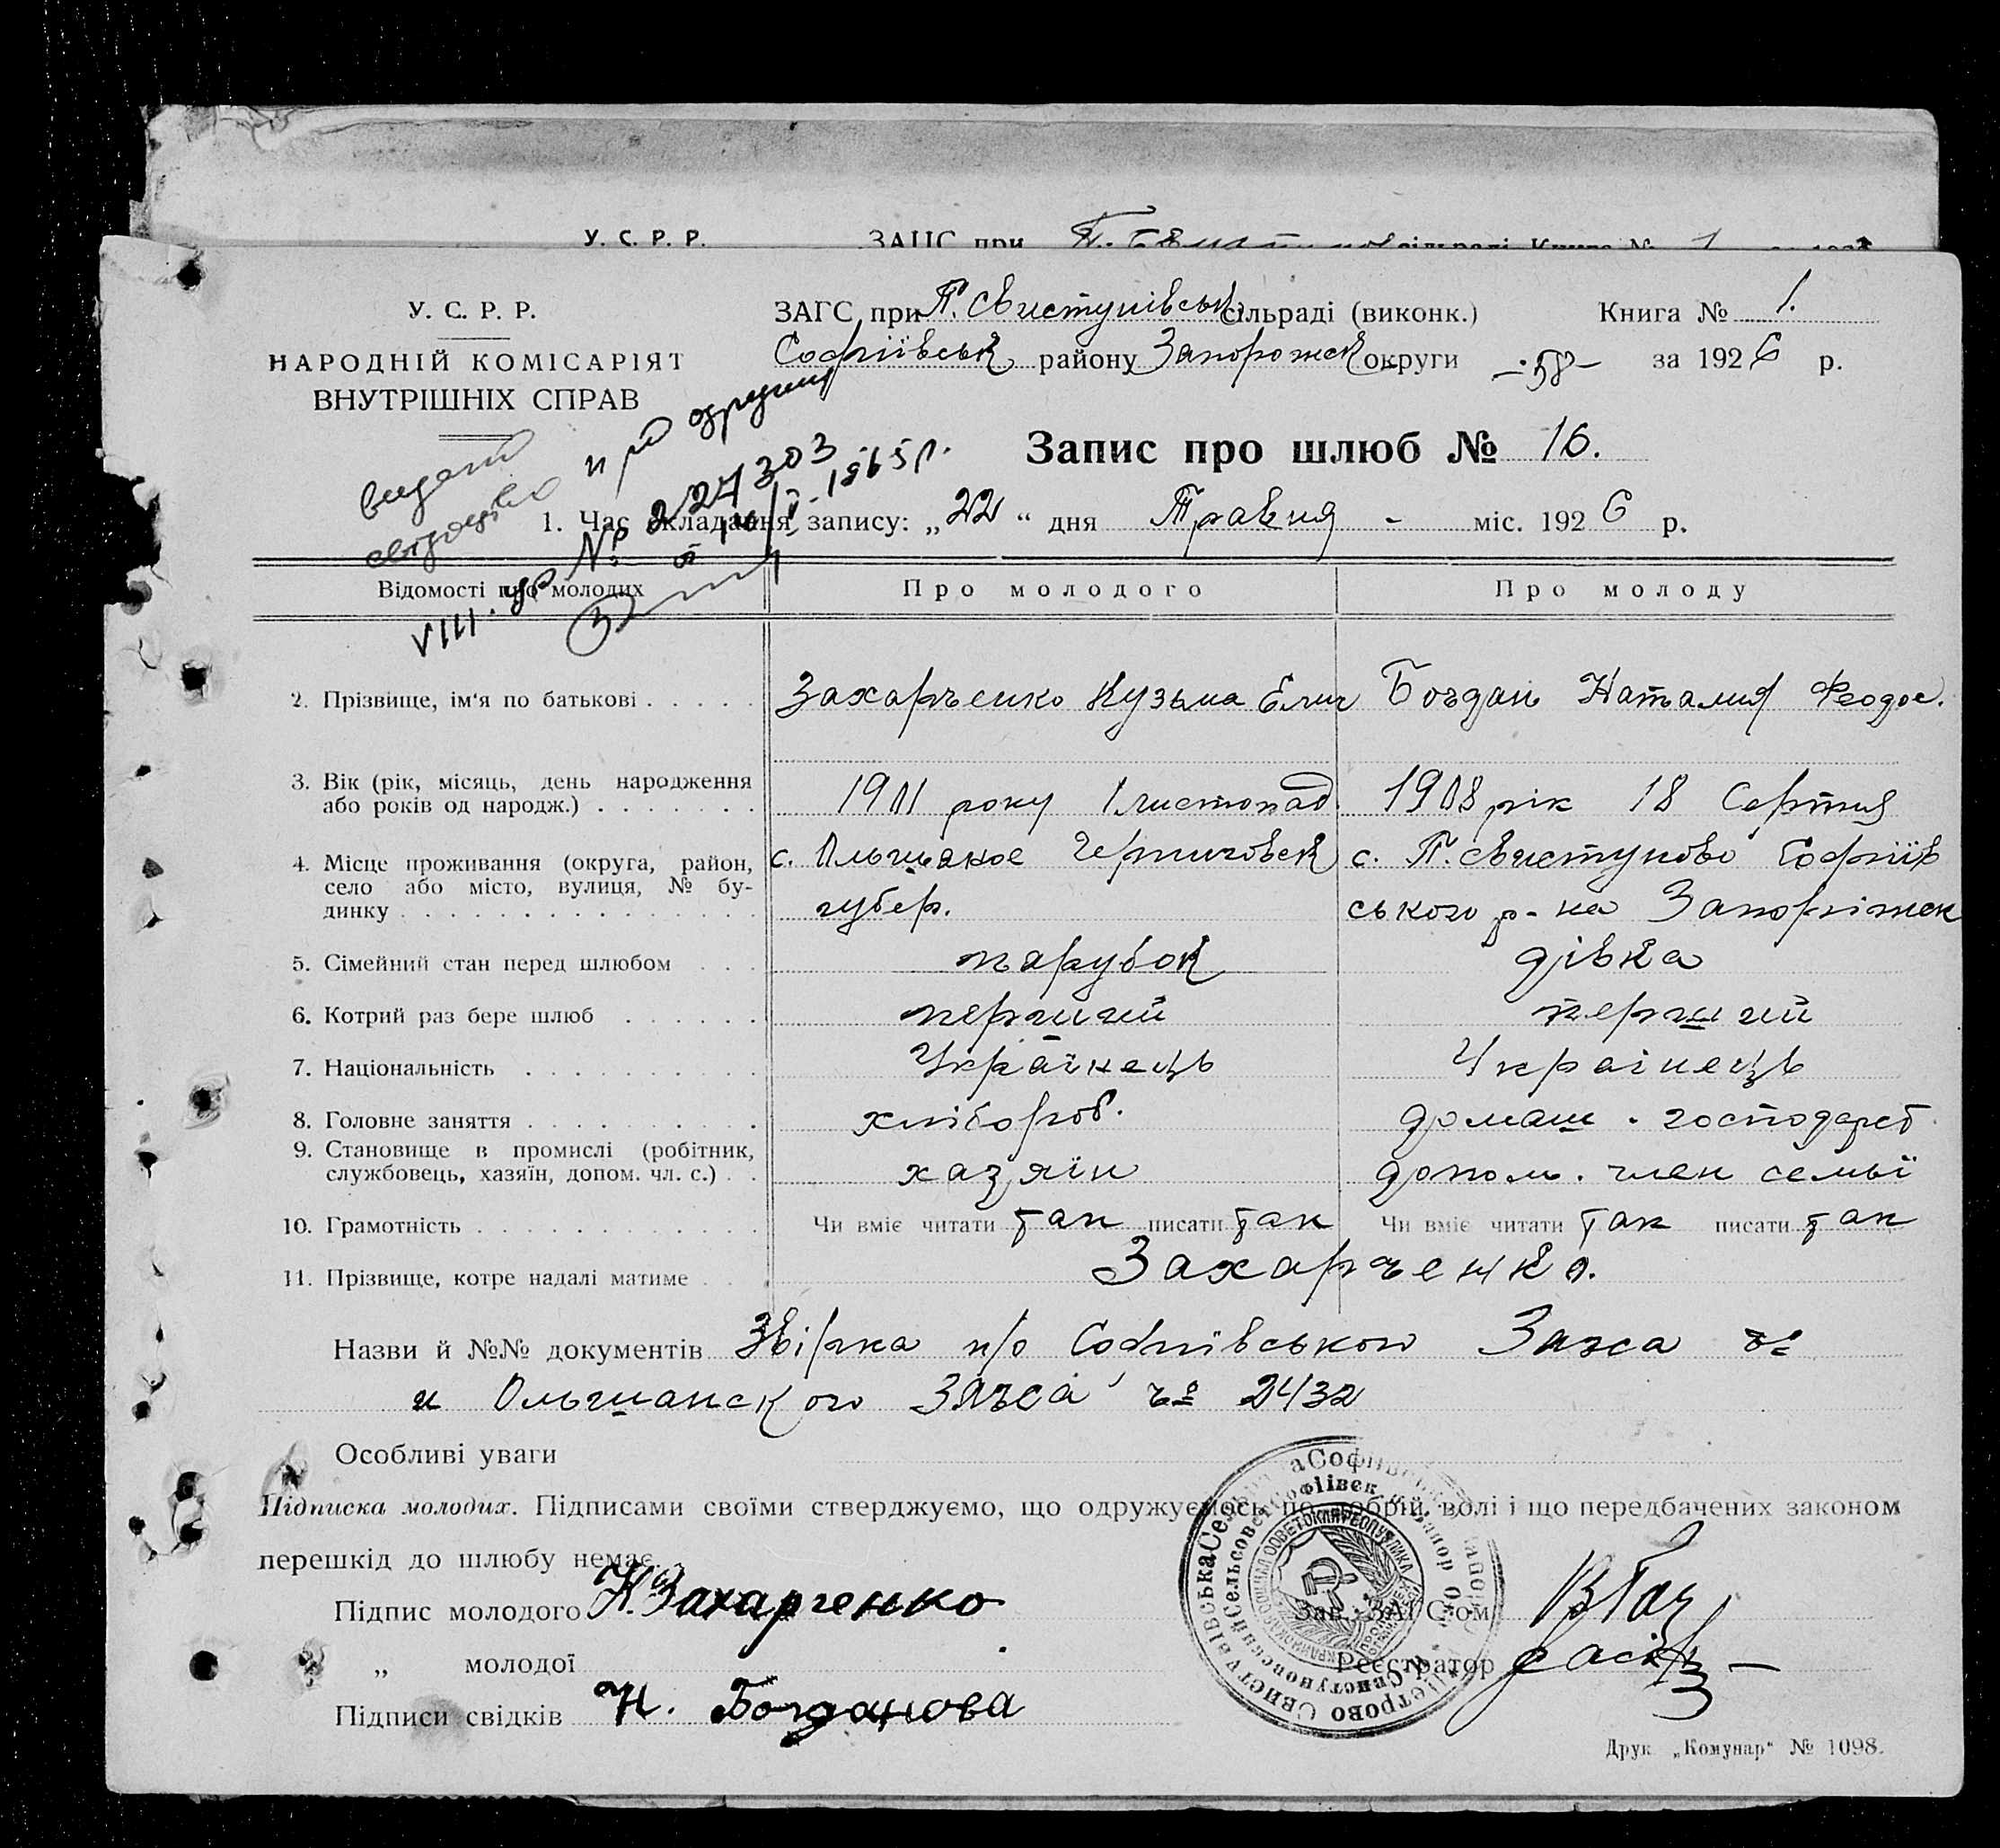 У. С. Р. Р. ЗАГС при
У. С. Р. Р.
НАРОДНІЙ КОМІСАРІЯТ
ВНУТРІШНІХ СПРАВ
ЗАГС при П. Свистунівськ сільраді (виконк.) Книга № 1.
Софіївськ району Запорожск округи -58- за 1926 р.
Запис про шлюб № 16.
1. Час складання запису: „22“ дня Травня - міс. 1926 р.
видано
свідоцтво про одруження
№ 227303
1965 р.
Відомості про молодих Про молодого Про молоду
2. Прізвище, ім'я по батькові Захарченко Кузьма Елич Богдан Наталия Феодос.
3. Вік (рік, місяць, день народження
або років од народж.) 1901 року 1 листопад. 1908 рік 18 Серпня
4. Місце проживання (округа, район,
село або місто, вулиця, № бу-
динку
с. Ольшаное Черниговск
губер.
с. П. Свистуново Софіїв
ського р-на Запоріжск
5. Сімейний стан перед шлюбом парубок дівка
6. Котрий раз бере шлюб перший перший
7. Національність Українець Українець
8. Головне заняття хлібороб. домаш. господарст.
9. Становище в промислі (робітник,
службовець, хазяїн, допом. чл. с.) хазяїн допом. член семьї
10. Грамотність Чи вміє читати так писати так Чи вміє читати так писати так
11. Прізвище, котре надалі матиме Захарченко.
Назви й №№ документів Звірка п/о Софиівського Загса
и Ольшанского Загса 2432
Особливі уваги
Підписка молодих. Підписами своїми стверджуємо, що одружуємось по добрій волі і що передбачених законом
перешкід до шлюбу немає.
Підпис молодого К. Захарченко Зав. ЗАГС'ом
„ молодої Реєстратор
Підписи свідків Н. Богданова
Друк „Комунар“ № 1098.